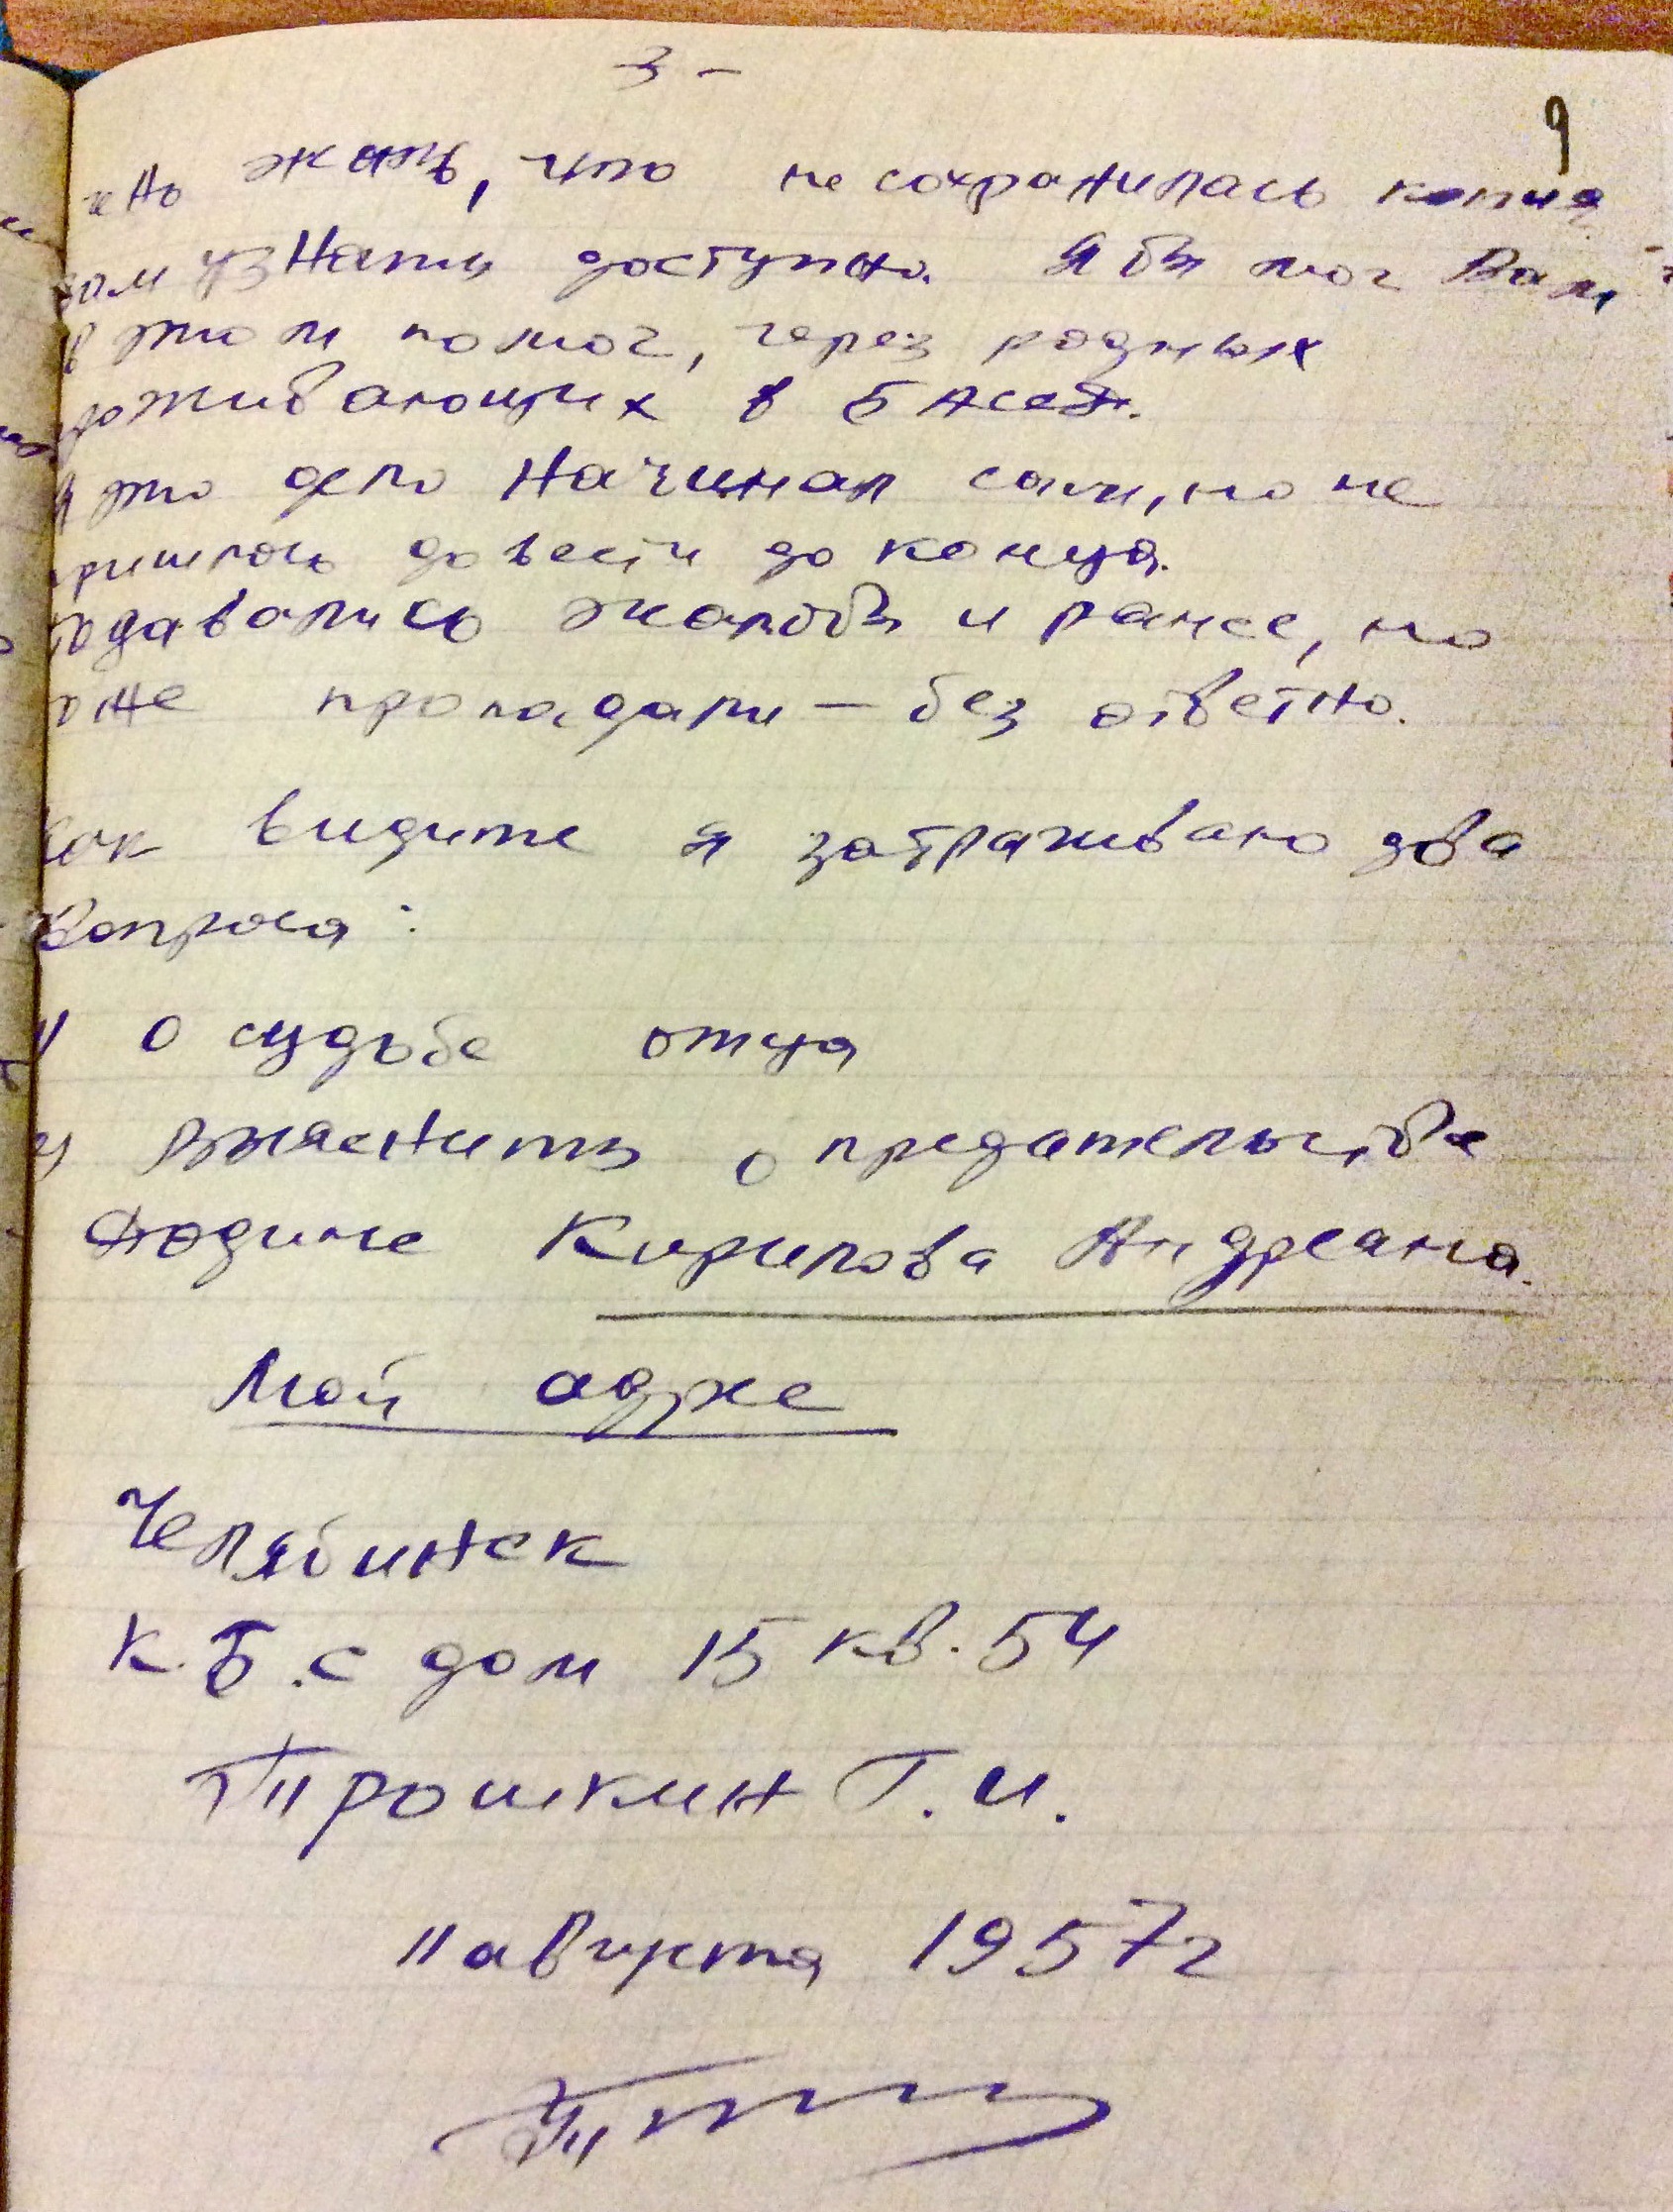 - 3 -
9
жаль, что не сохранилась копия
Вам узнать доступно. Я бы мог Вам
в этом помоч, через родных
роживающих в
я это дело начинал сам, но не
ришлось довести до конца.
подавались жалобы и ранее, но
оне пропадали — без ответно.
Как видите я затрагиваю два
Вопроса:
1) О судьбе отца
2) Выяснить о предательстве
Родине Кирилова Андреана.
Мой адрес
Челябинск
К.Б.С дом 15 кв. 54
Трошкин Г.И.
11 августа 1957 г